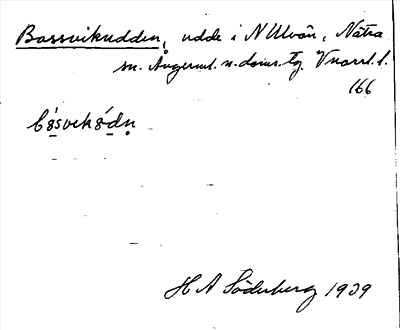 Bassvikudden, udde i N Ulvön, Nätra
sn. Ångerml. n. doms. tg. V norrl. l.
166
H A Söderberg 1939